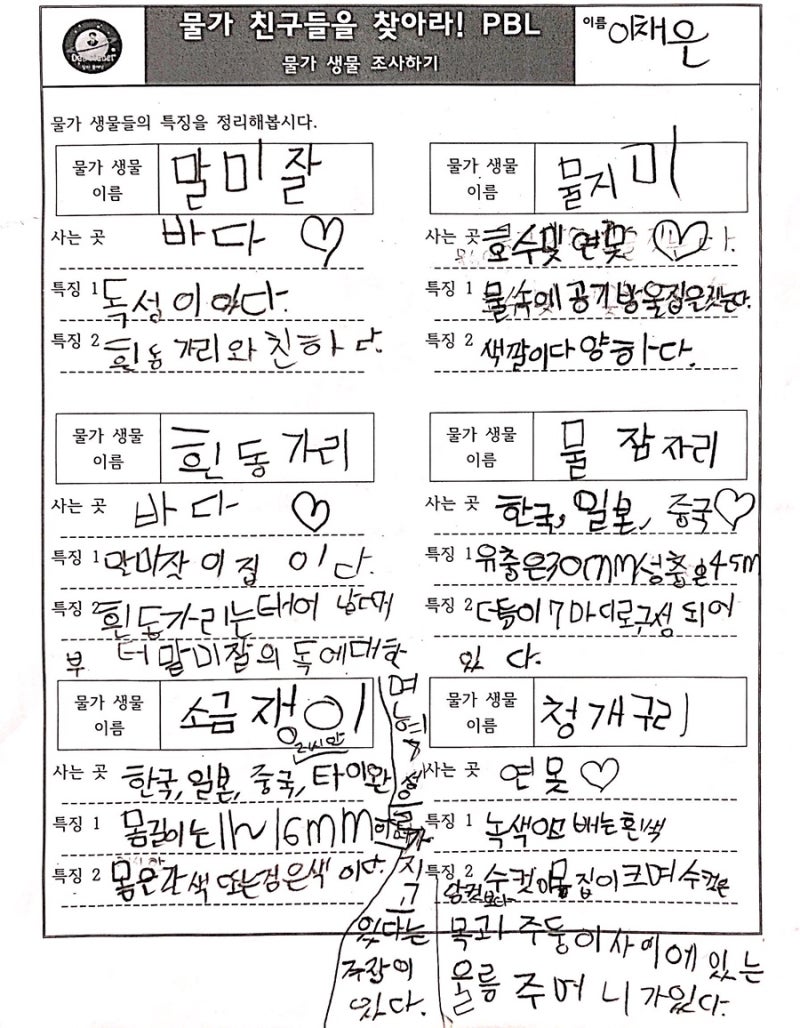 물가 친구들을 찾아라! PBL
물가 생물 조사하기
이름 이채은
물가 생물들의 특징을 정리해봅시다.
물가 생물 이름 말미잘
사는 곳 바다
특징 1 독성이 있다.
특징 2 흰동가리와 친하다.
물가 생물 이름 물지미
사는 곳 호수및 연못
특징 1 물속에 공기방울집을짓는다.
특징 2 색깔이다양하다.
물가 생물 이름 흰동가리
사는 곳 바다
특징 1 말미잘이 집이다.
특징 2 흰동가리는 태어
부터 말미잘의 독에대한
면역
성을
가
지고
있다는
주장이
있다.
물가 생물 이름 물잠자리
사는 곳 한국, 일본, 중국
특징 1 유충은30mm성충은45m
특징 2 더듬이 7마디로구성 되어
있다.
물가 생물 이름 소금쟁이
사는 곳 한국, 일본, 중국, 타이완
러시아
특징 1 몸길이는11~16mm
특징 2 몸은갈색 또는검은색이다.
물가 생물 이름 청개구리
사는 곳 연못
특징 1 녹색이고 배는흰색
특징 2 수컷이 암컷보다 몸집이크며 수컷은
목과 주둥이사이에 있는
울음 주머니가있다.